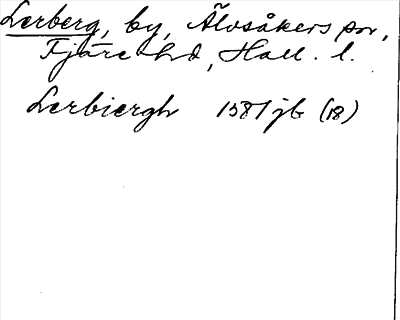 Lerberg, by, Älvsåkers sn,
Fjäre hd, Hall. l.
Lerbiergh 1581 jb (18)